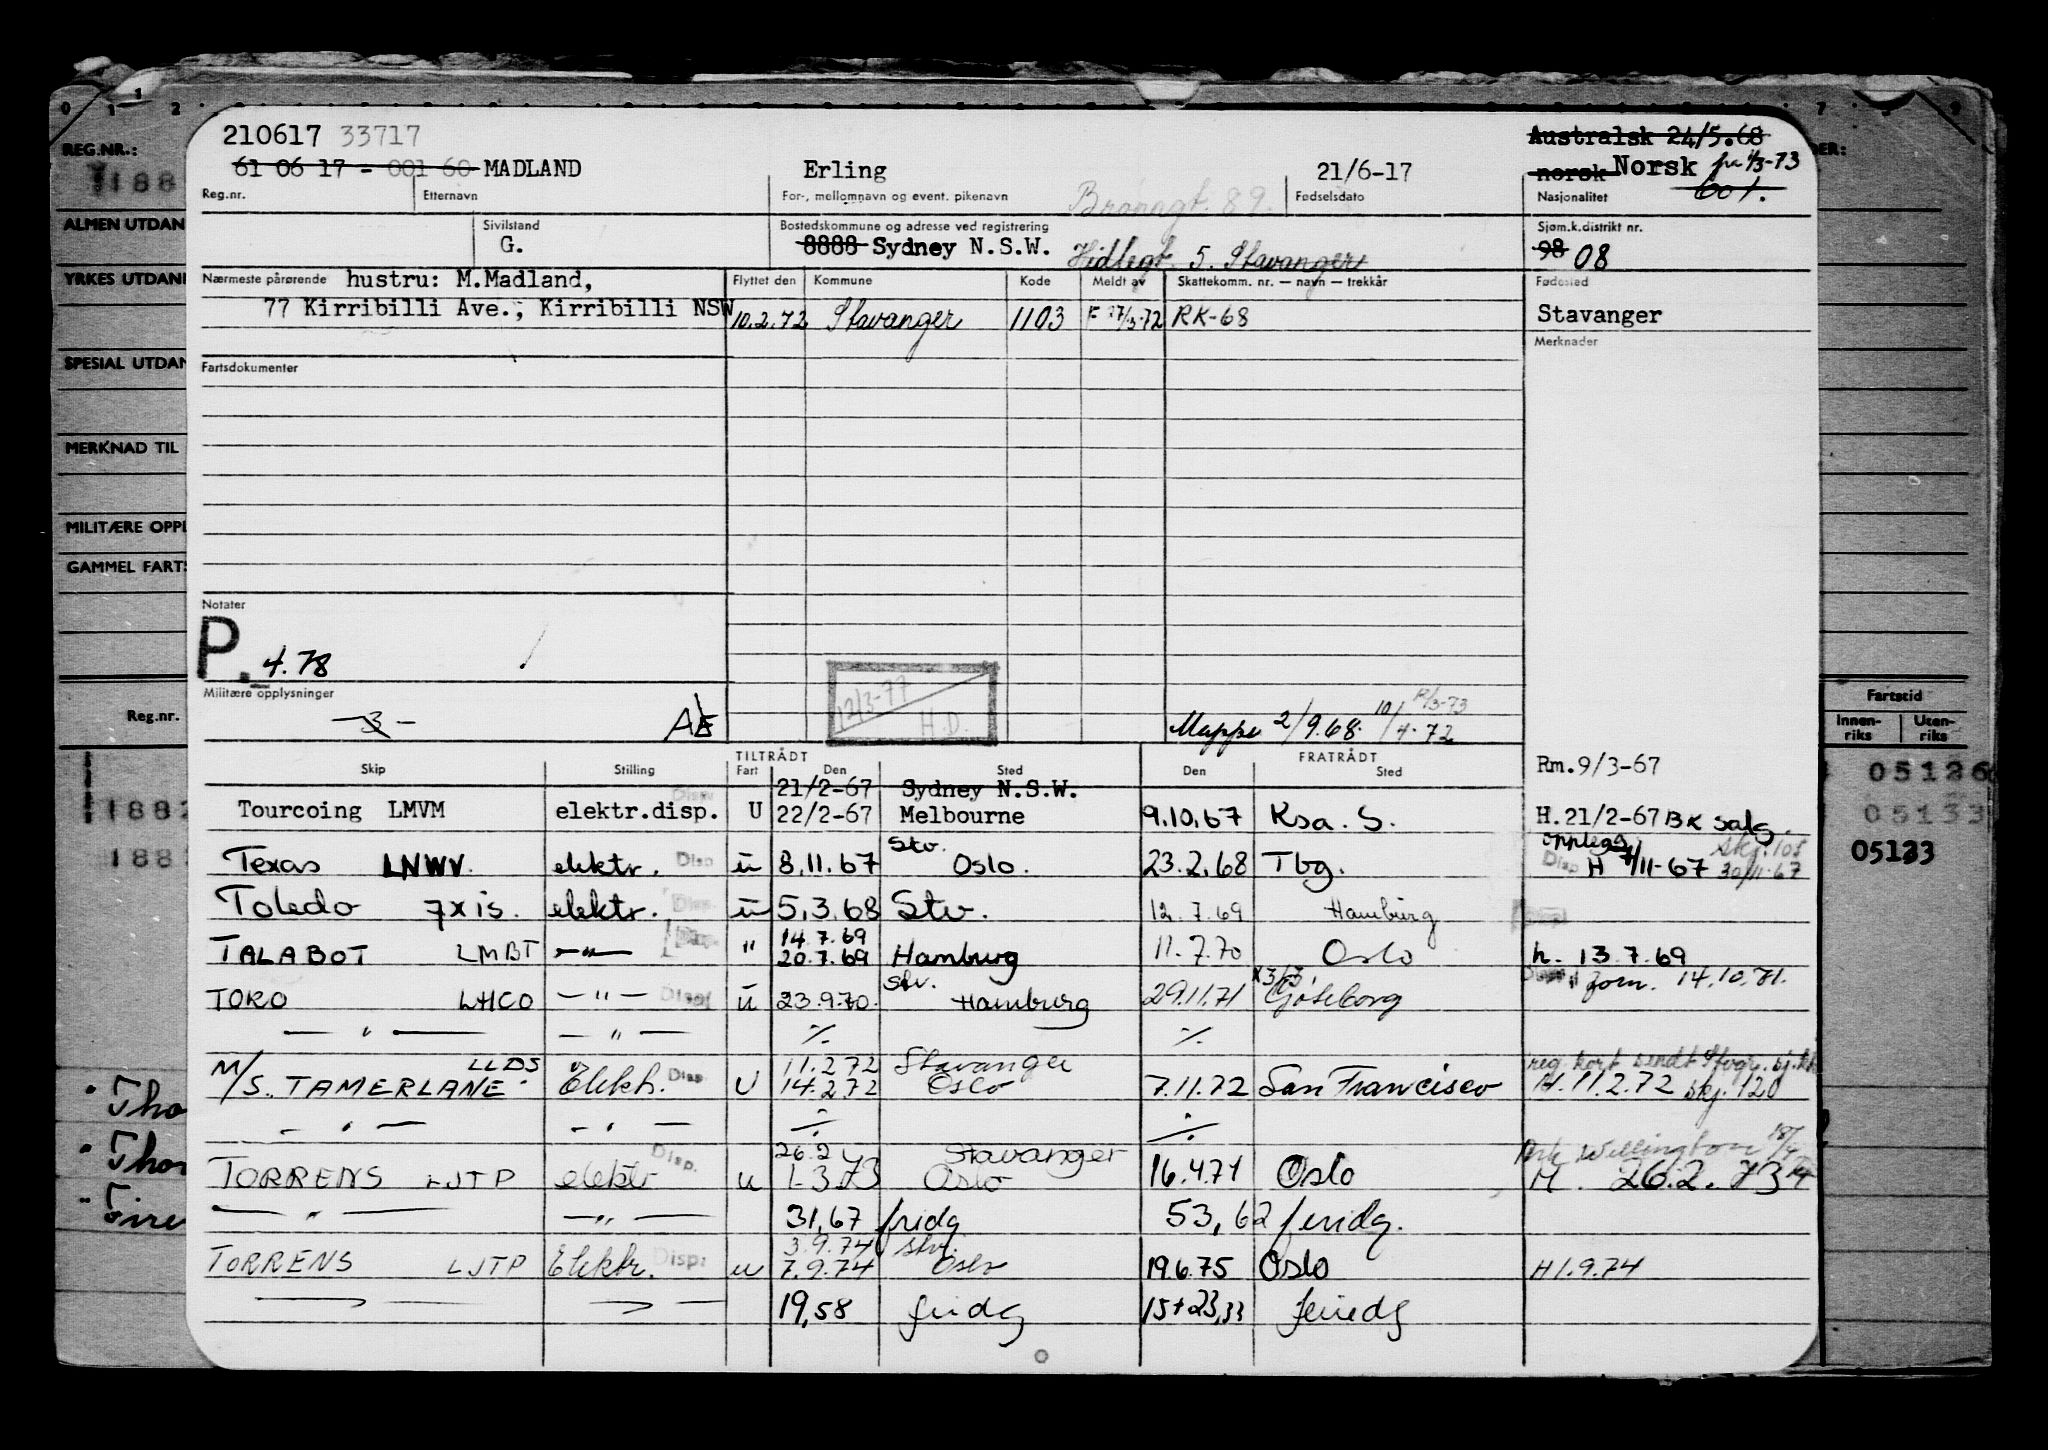 210617 33717
Australsk 24/5.68
61 06 17 - 001 60 MADLAND Erling 21/6-17 norsk Norsk fra 1/3-73
601.
Reg.nr. Etternavn For-, mellomnavn og event. pikenavn Fødselsdato Nasjonalitet
Sivilstand Bostedskommune og adresse ved registrering Sjøm.k.distrikt nr.
G. 8888 Sydney N.S.W. Hidlegt. 5. Stavanger 98 08
Nærmeste pårørende hustru: M.Madland, Flyttet den Kommune Kode Meldt av Skattekomm. nr. — navn — trekkår Fødested
77 Kirribilli Ave., Kirribilli NSW 10.2.72 Stavanger 1103 F 27/3-72 RK-68 Stavanger
Merknader
Fartsdokumenter
Notater
P. 4.78
Militære opplysninger 12/3-77
-3- AE H.D. Mappe 2/9.68. 10/4-72 12/3-73
TILTRÅDT FRATRÅDT
Skip Stilling Fart Den Sted Den Sted Rm.9/3-67
21/2-67 Sydney N.S.W.
Tourcoing LMVM elektr.disp. U 22/2-67 Melbourne 9.10.67 Ksa. S. H.21/2-67 BK salg.
Stv.
Texas LNWV elektr. Disp u 8.11.67 Oslo. 23.2.68 Tbg. Disp H 7/11-67 skj. 108 30/11-67
Toledo 7XIS. elektr. Disp. u 5.3.68 Stv. 12.7.69 Hamburg
14.7.69
TALABOT LMBT —"— " 20.7.69 Hamburg 11.7.70 Oslo h. 13.7.69
Stv.
TORO LHCO —"— Disp u 23.9.70. Hamburg 29.11.71 Göteborg 14.10.71.
— " — — " — ./. ./.
LLDS 11.2.72 Stavanger reg. kort sendt
M/S. TAMERLANE. Elektr. Disp. U 14.2.72 Oslo 7.11.72 San Francisco H. 11.2.72 skj. 120
— " — — " — ./. ./.
26.2 Stavanger
TORRENS LJTP elektr Disp. u 1-3.73 Oslo 16.4.74 Oslo M. 26.2.73
— " — — " — 31,67 fridg 53,62 feridg.
3.9.74 Stv.
TORRENS LJTP Elektr. Disp: u 7.9.74 Oslo 19.6.75 Oslo H 1.9.74
19,58 fridg 15+23,33 feriedg
REG.NR.:
188
ALMEN UTDAN
YRKES UTDAN
SPESIAL UTDAN
MERKNAD TIL
MILITÆRE OPPL
GAMMEL FARTS
Reg.nr.
1882
188
Tho
Thor
Fartstid
Innen-riks Uten-riks
05126
05133
05133